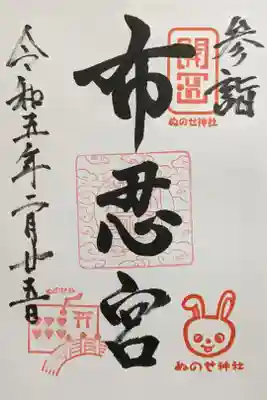 参詣
開運
ぬのせ神社
布忍宮
ぬのせ神社
令和五年一月廿五日